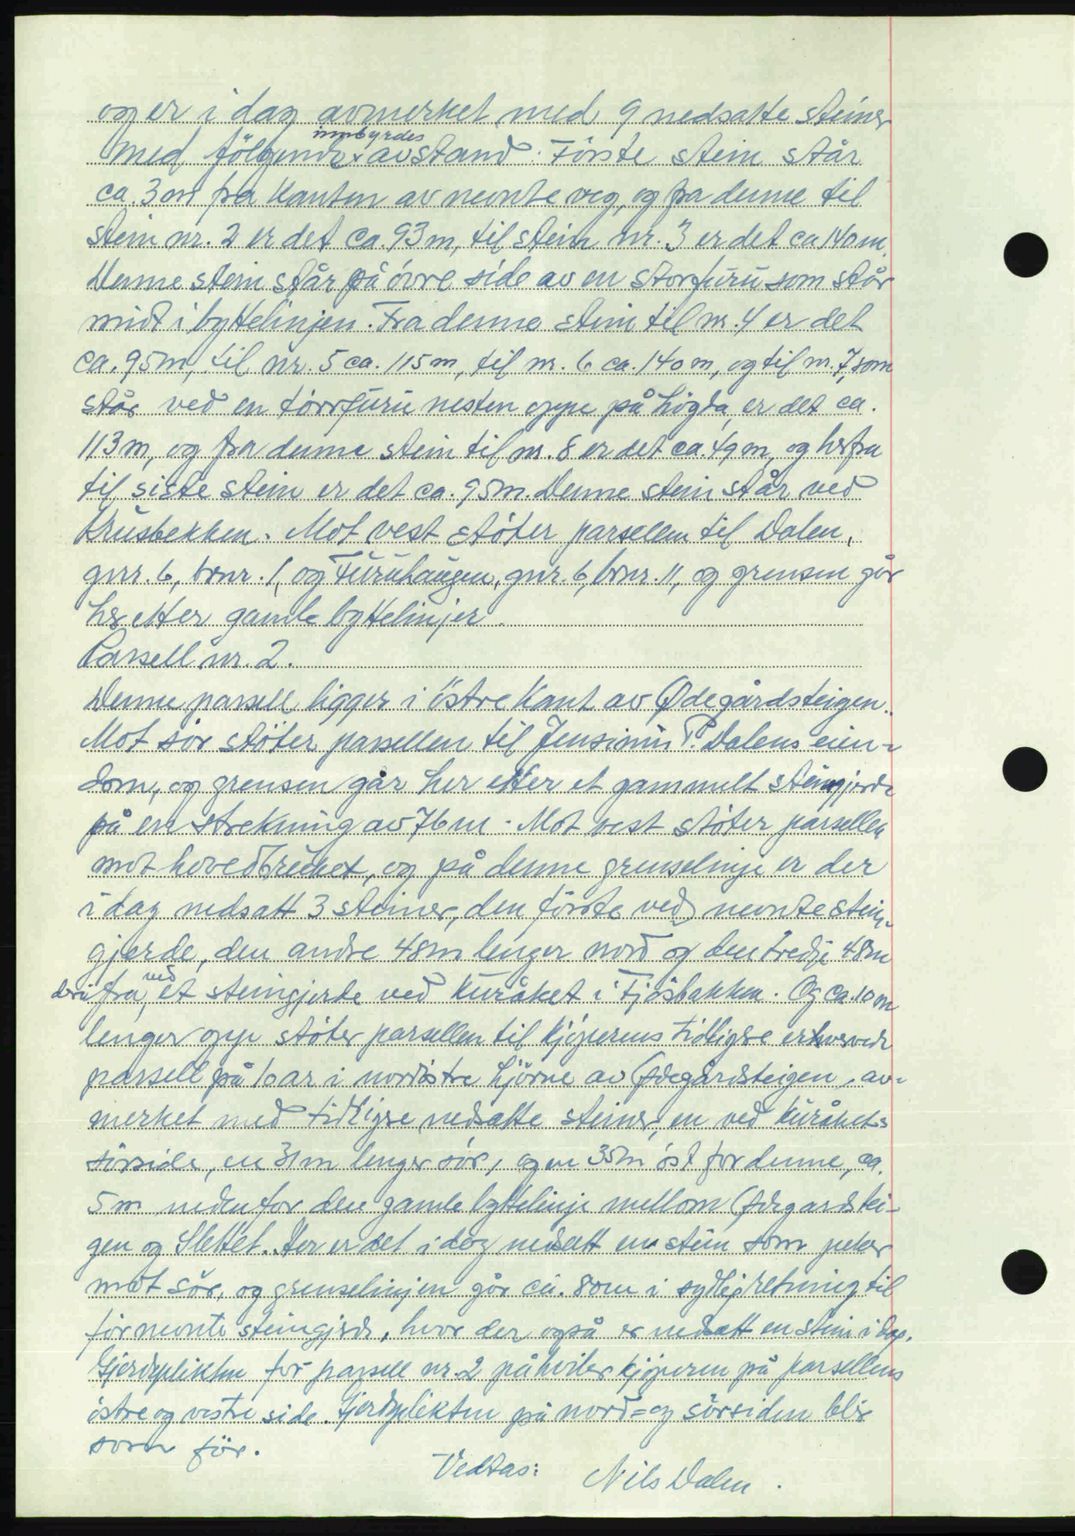 og er i dag avmerket med 9 nedsatte steiner
med følgende innbyrdes avstand. Første stein står
ca. 3 m fra kanten av nevnte veg, og fra denne til
stein nr. 2 er det ca 93 m, til stein nr. 3 er det ca 140 m.
Denne stein står på övre side av en storfuru som står
midt i byttelinjen. Fra denne stein til nr. 4 er det
ca. 95 m, til nr. 5 ca. 115 m, til nr. 6 ca. 140 m, og til nr. 7, som
står ved en törrfuru nesten oppe på högda, er det ca.
113 m, og fra denne stein til nr. 8 er det ca. 49 m, og herfra
til siste stein er det ca. 95 m. Denne stein står ved
Krusbekken. Mot vest stöter parsellen til Dalen,
gnr. 6, brnr. 1, og Furuhaugen, gnr. 6, brnr. 11, og grensen går
her etter gamle byttelinjer.
Parsell nr. 2.
Denne parsell ligger i östre kant av Ødegårdsteigen.
Mot sör stöter parsellen til Jensinius P. Dalens eien-
dom, og grensen går her etter et gammelt steingjerde
på en strekning av 76 m. Mot vest stöter parsellen
mot hovedbruket, og på denne grenselinje er der
i dag nedsatt 3 steiner, den förste ved nevnte stein-
gjerde, den andre 48 m lenger nord og den tredje 48 m
derifra, ved et steingjerde ved kuråket i Fjösbakken. Og ca. 10 m
lenger oppe stöter parsellen til kjöperens tidligere erhvervede
parsell på 16 ar i nordöstre hjörne av Ødegårdsteigen, av-
merket med tidligere nedsatte steiner, en ved kuråkets
sörside, en 31 m lenger sör, og en 35 m öst for denne, ca.
5 m nedenfor den gamle byttelinje mellom Ødegardstei-
gen og Slettet. Her er det i dag nedsatt en stein som peker
mot sör, og grenselinjen går ca. 80 m i sydlig retning til
förnevnte steingjerde, hvor der også er nedsatt en stein i dag.
Gjerdeplikten for parsell nr. 2 påhviler kjöperen på parsellens
östre og vestre side. Gjerdeplikten på nord- og sörsiden blir
som för.
Vedtas: Nils Dalen.